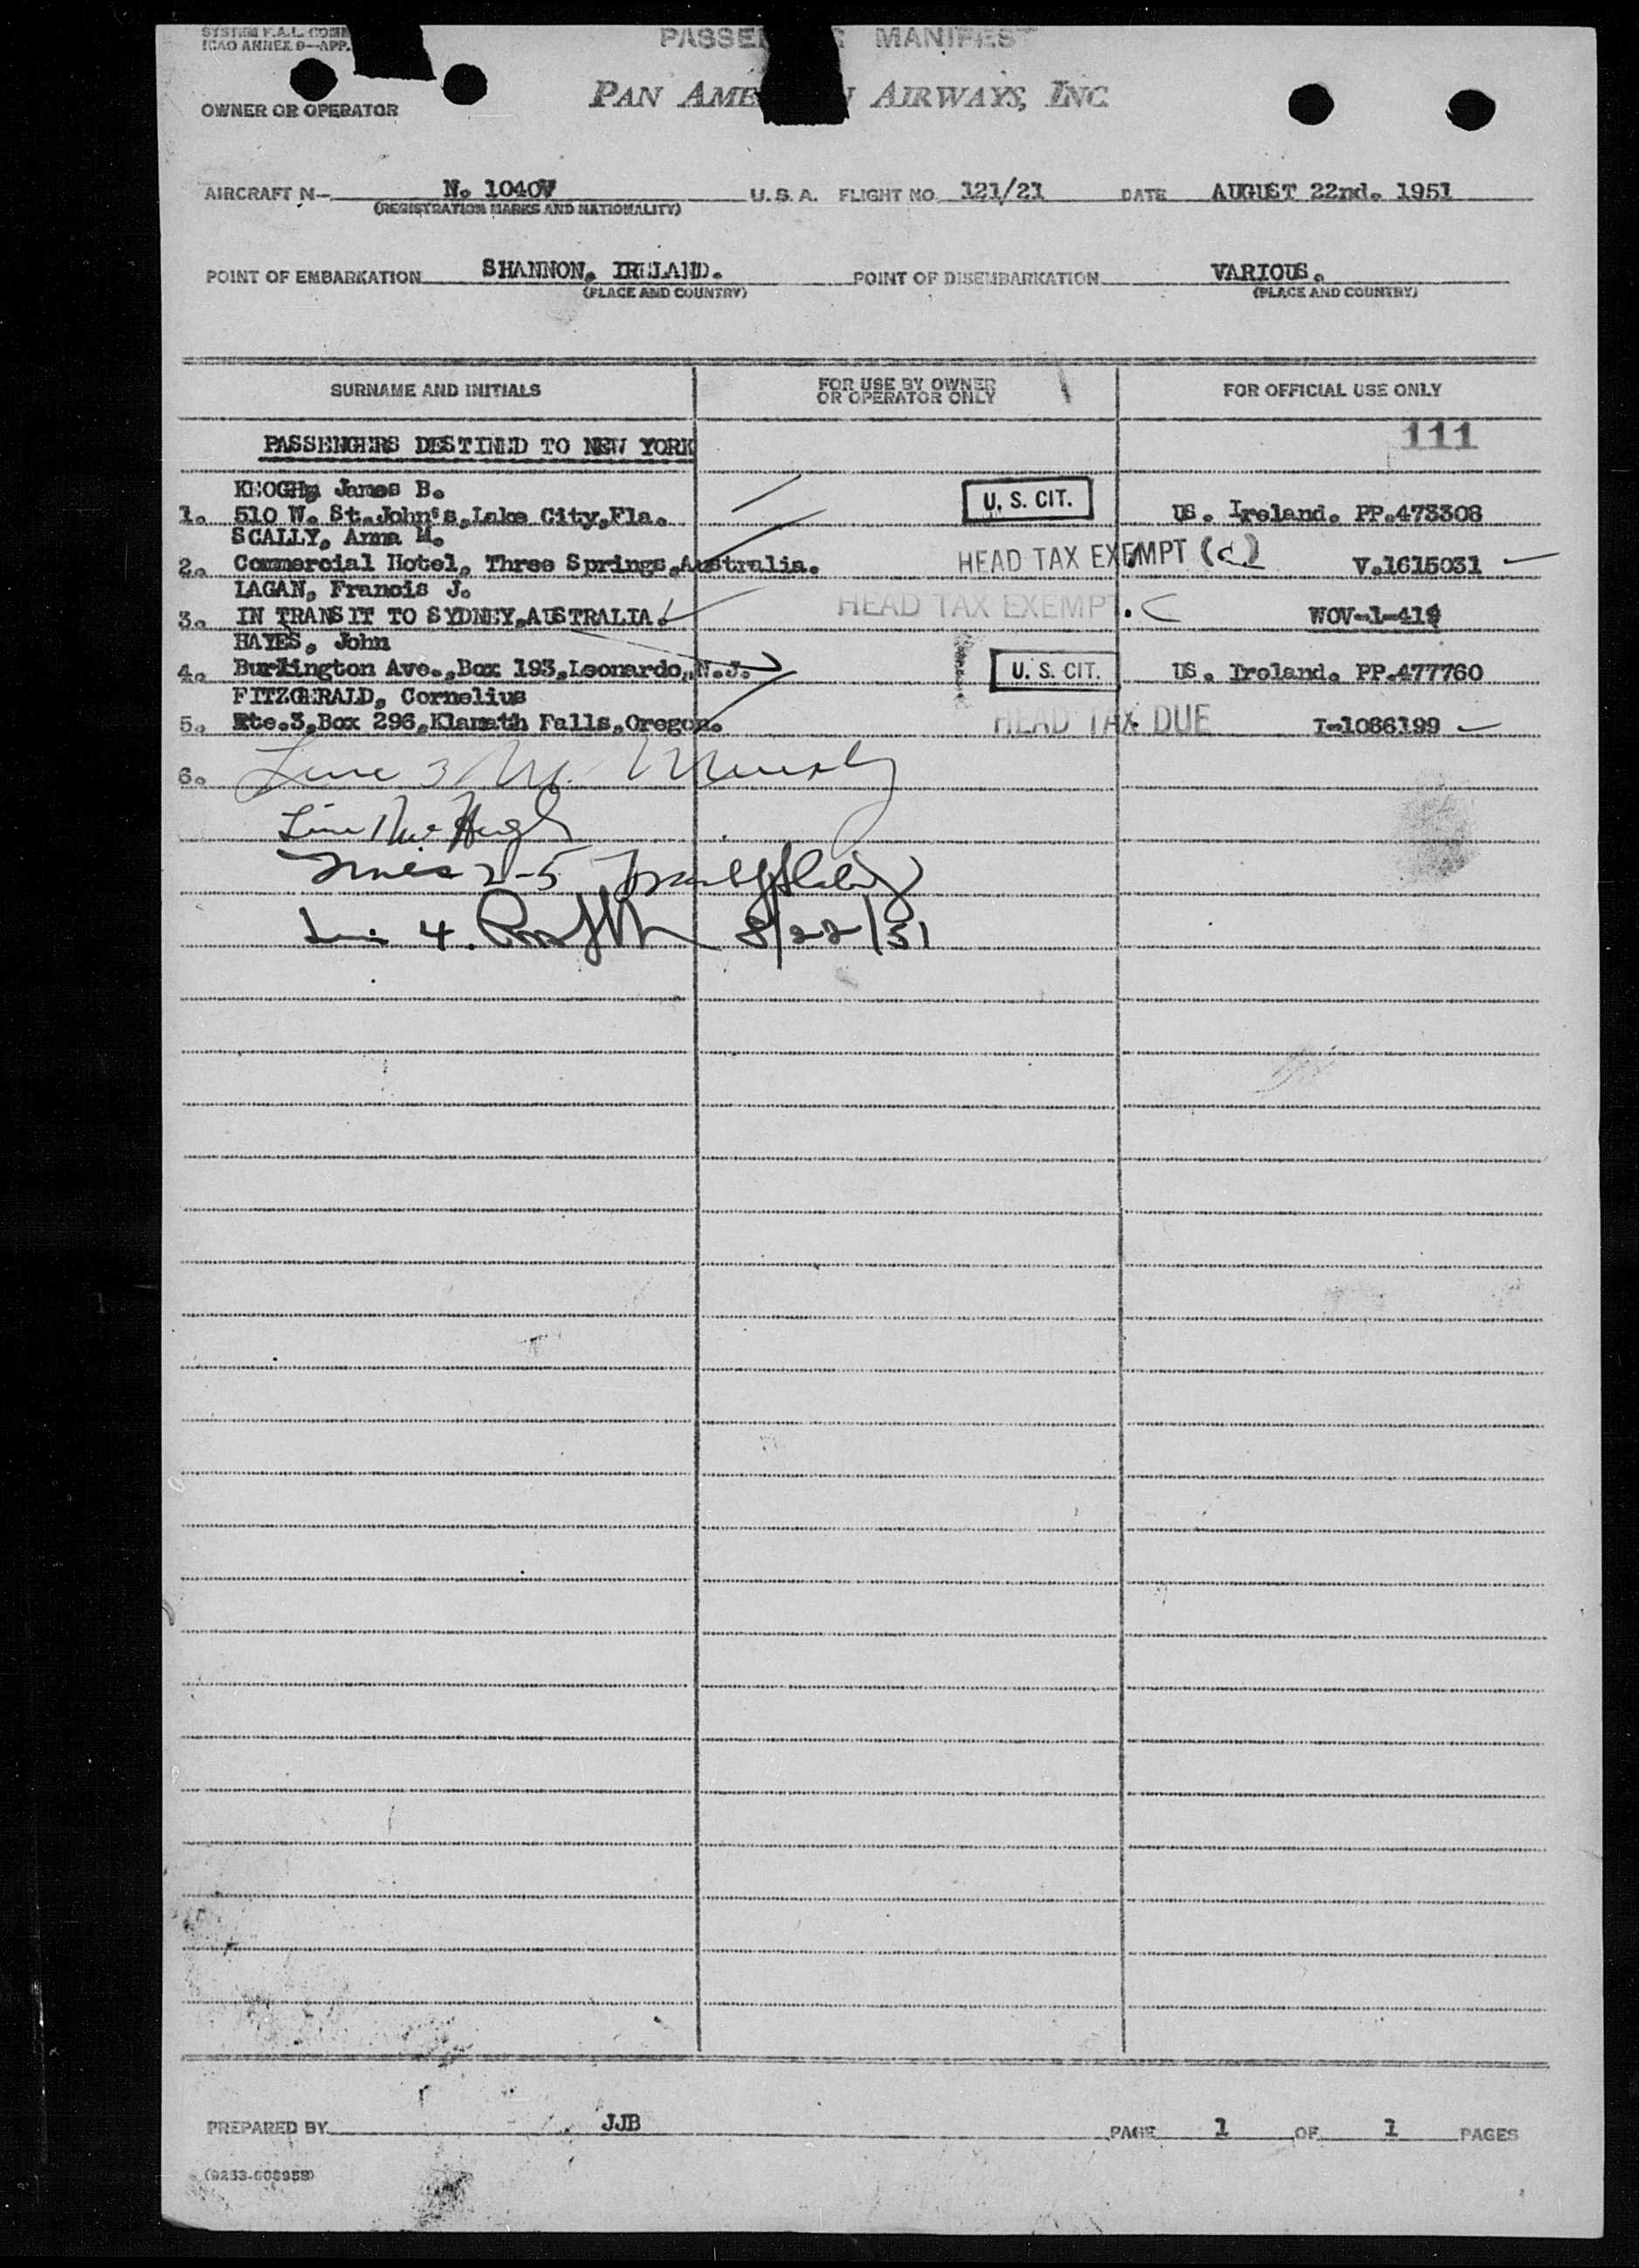 SYSTEM F.A.L. COM
ICAO ANNEX 9—APP.
PASSE MANIFEST
OWNER OR OPERATOR
PAN AME N AIRWAYS, INC
AIRCRAFT N— N. 1040V U.S.A. FLIGHT NO. 121/21 DATE AUGUST 22nd. 1951
(REGISTRATION MARKS AND NATIONALITY)
POINT OF EMBARKATION SHANNON, IRELAND. POINT OF DISEMBARKATION VARIOUS.
(PLACE AND COUNTRY) (PLACE AND COUNTRY)
SURNAME AND INITIALS FOR USE BY OWNER OR OPERATOR ONLY FOR OFFICIAL USE ONLY
111
PASSENGERS DESTINED TO NEW YORK
KEOGH, James B.
1. 510 W. St.John's,Lake City,Fla. U. S. CIT. US. Ireland. PP.473308
SCALLY, Anna M.
2. Commercial Hotel, Three Springs,Australia. HEAD TAX EXEMPT (c) V.1615031
LAGAN, Francis J.
3. IN TRANSIT TO SYDNEY,AUSTRALIA. HEAD TAX EXEMPT. C WOV-1-419
HAYES, John
4. Burlington Ave.,Box 193,Leonardo,N.J. U. S. CIT. US. Ireland. PP.477760
FITZGERALD, Cornelius
5. Rte.3,Box 296,Klamath Falls,Oregon. HEAD TAX DUE I-1086199
6. Line 3 M. Murphy
Line 1 Mc Hugh
Lines 2-5
Line 4. 8/22/51
PREPARED BY JJB PAGE 1 OF 1 PAGES